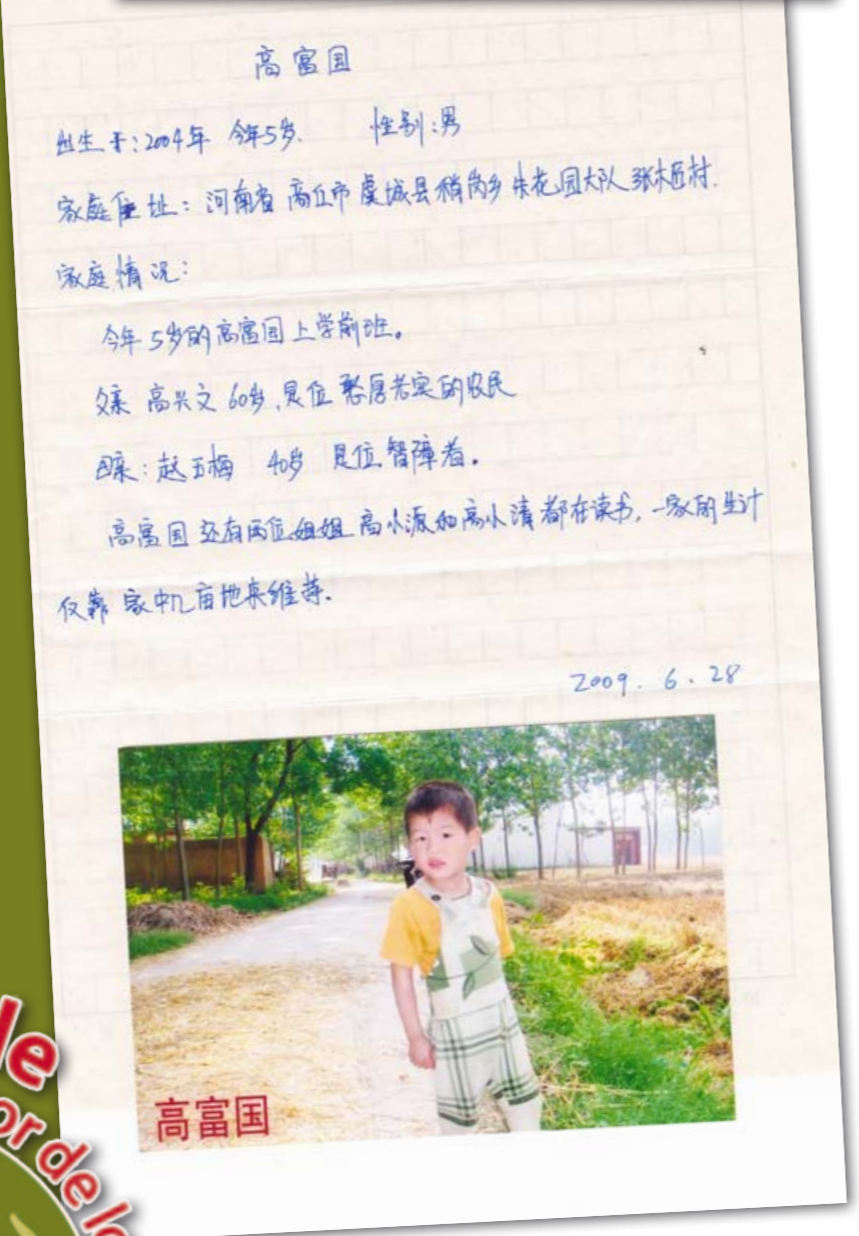 高富国
出生于:2004年 今年5岁. 性别:男
家庭住址: 河南省 商丘市 虞城县稍岗乡 朱花园大队张木匠村.
家庭情况:
今年5岁的高富国上学前班。
父亲 高兴文 60岁,是位憨厚老实的农民
母亲:赵玉梅 40岁 是位智障者.
高富国 还有两位姐姐 高小源和高小清都在读书, 一家的生计
仅靠家中几亩地来维持.
2009.6.28
高富国
le
or de lo